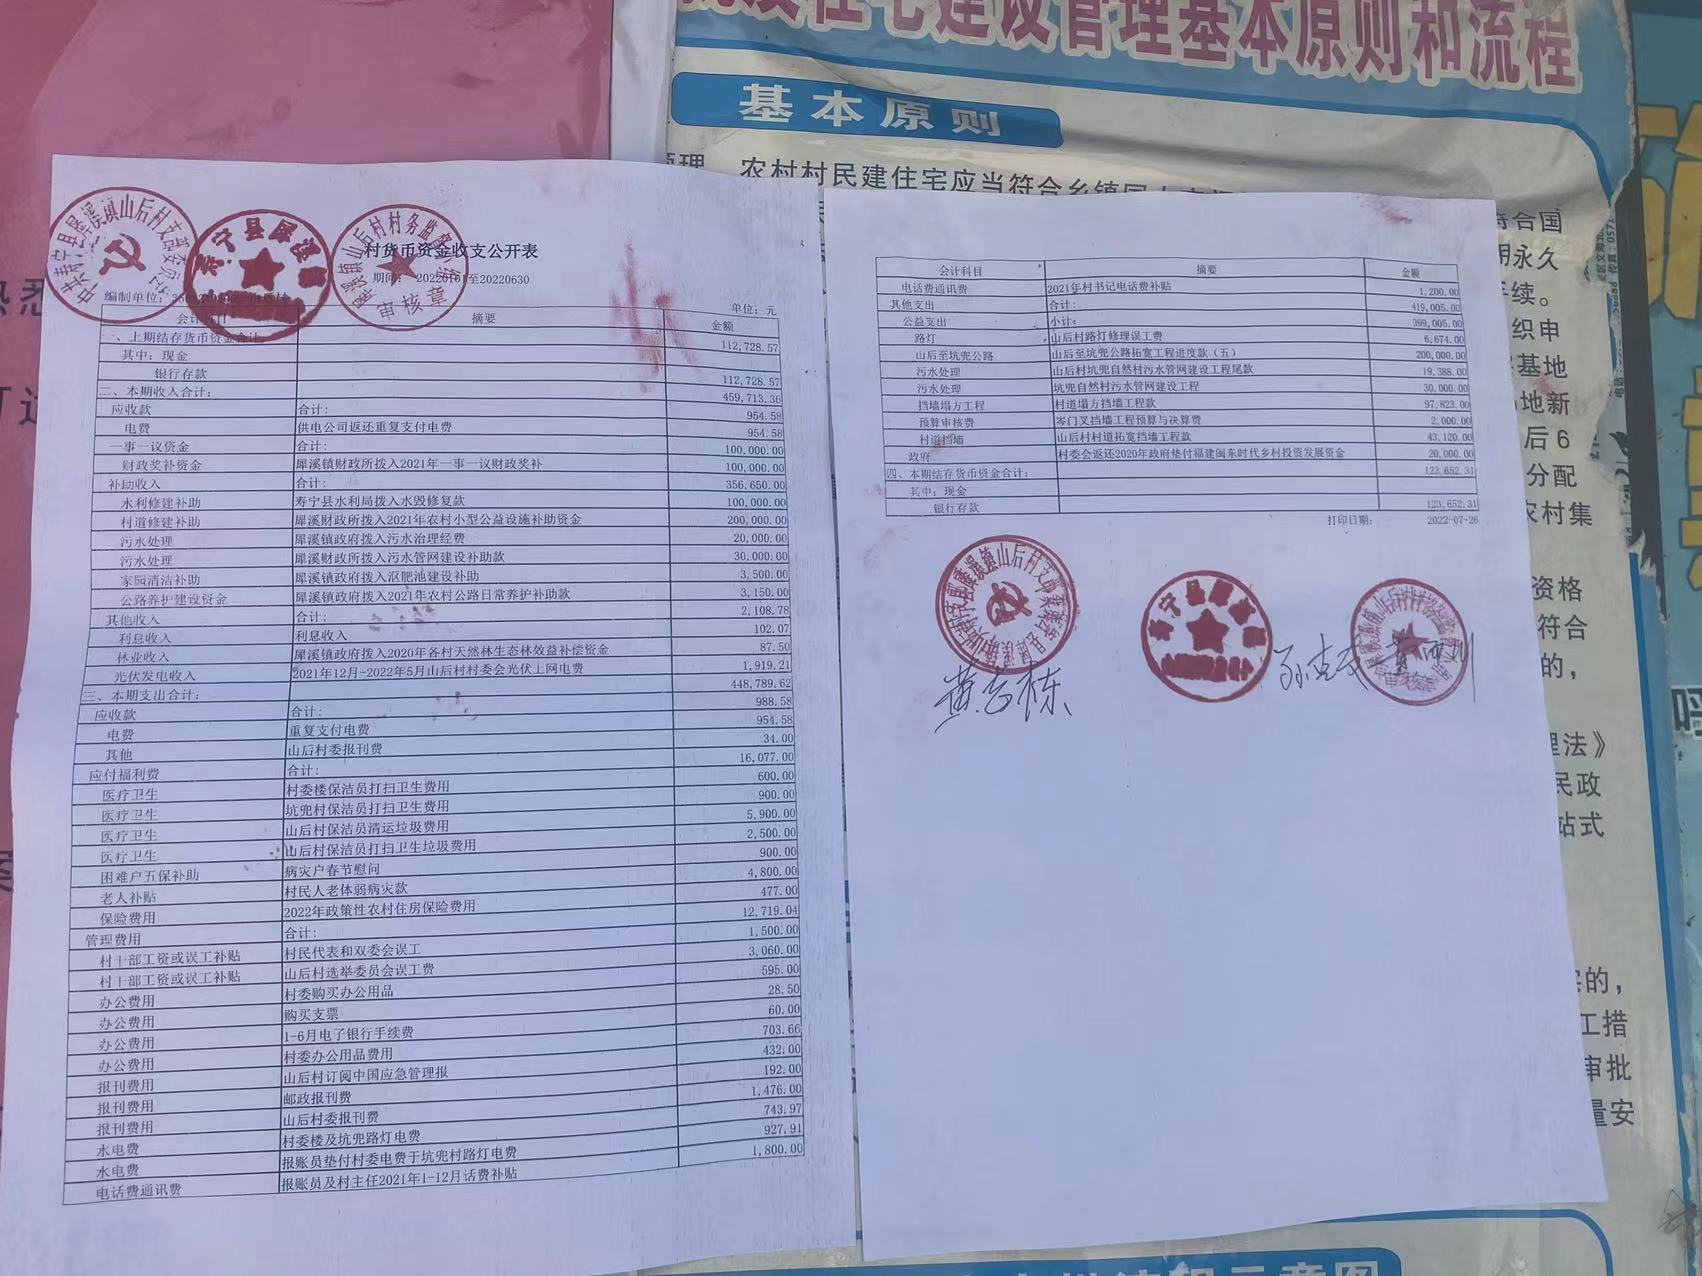 建设管理基本原则和流程
基本原则
农村村民建住宅应当符合乡镇国土空
村货币资金收支公开表
期间: 20220101至20220630
编制单位:
单位: 元
摘要 金额
一、上期结存货币资金合计: 112,728.57
其中: 现金
银行存款 112,728.57
二、本期收入合计: 459,713.36
应收款 合计: 954.58
电费 供电公司返还重复支付电费 954.58
一事一议资金 合计: 100,000.00
财政奖补资金 犀溪镇财政所拨入2021年一事一议财政奖补 100,000.00
补助收入 合计: 356,650.00
水利修建补助 寿宁县水利局拨入水毁修复款 100,000.00
村道修建补助 犀溪财政所拨入2021年农村小型公益设施补助资金 200,000.00
污水处理 犀溪镇政府拨入污水治理经费 20,000.00
污水处理 犀溪财政所拨入污水管网建设补助款 30,000.00
家园清洁补助 犀溪镇政府拨入沤肥池建设补助 3,500.00
公路养护建设资金 犀溪镇政府拨入2021年农村公路日常养护补助款 3,150.00
其他收入 合计: 2,108.78
利息收入 利息收入 102.07
林业收入 犀溪镇政府拨入2020年各村天然林生态林效益补偿资金 87.50
光伏发电收入 2021年12月-2022年5月山后村村委会光伏上网电费 1,919.21
三、本期支出合计: 448,789.62
应收款 合计: 988.58
电费 重复支付电费 954.58
其他 山后村委报刊费 34.00
应付福利费 合计: 16,077.00
医疗卫生 村委楼保洁员打扫卫生费用 600.00
医疗卫生 坑兜村保洁员打扫卫生费用 900.00
医疗卫生 山后村保洁员清运垃圾费用 5,900.00
医疗卫生 山后村保洁员打扫卫生垃圾费用 2,500.00
困难户五保补助 病灾户春节慰问 900.00
老人补贴 村民人老体弱病灾款 4,800.00
保险费用 2022年政策性农村住房保险费用 477.00
管理费用 合计: 12,719.04
村干部工资或误工补贴 村民代表和双委会误工 1,500.00
村干部工资或误工补贴 山后村选举委员会误工费 3,060.00
办公费用 村委购买办公用品 595.00
办公费用 购买支票 28.50
办公费用 1-6月电子银行手续费 60.00
办公费用 村委办公用品费用 703.66
报刊费用 山后村订阅中国应急管理报 432.00
报刊费用 邮政报刊费 192.00
报刊费用 山后村委报刊费 1,476.00
水电费 村委楼及坑兜路灯电费 743.97
水电费 报账员垫付村委电费于坑兜村路灯电费 927.91
电话费通讯费 报账员及村主任2021年1-12月话费补贴 1,800.00
会计科目 摘要 金额
电话费通讯费 2021年村书记电话费补贴 1,200.00
其他支出 合计: 419,005.00
公益支出 小计: 399,005.00
路灯 山后村路灯修理误工费 6,674.00
山后至坑兜公路 山后至坑兜公路拓宽工程进度款(五) 200,000.00
污水处理 山后村坑兜自然村污水管网建设工程尾款 19,388.00
污水处理 坑兜自然村污水管网建设工程 30,000.00
挡墙塌方工程 村道塌方挡墙工程款 97,823.00
预算审核费 岑门叉挡墙工程预算与决算费 2,000.00
村道挡墙 山后村村道拓宽挡墙工程款 43,120.00
政府 村委会返还2020年政府垫付福建闽东时代乡村投资发展资金 20,000.00
四、本期结存货币资金合计: 123,652.31
其中: 现金
银行存款 123,652.31
打印日期: 2022-07-26
中共寿宁县犀溪镇山后村支部委员会
寿宁县犀溪镇
犀溪镇山后村村务监督
审核章
符合国
用永久
续。
织申
基地
地新
后6
分配
农村集
资格
符合
的,
理法》
民政
站式
的,
工措
审批
量安